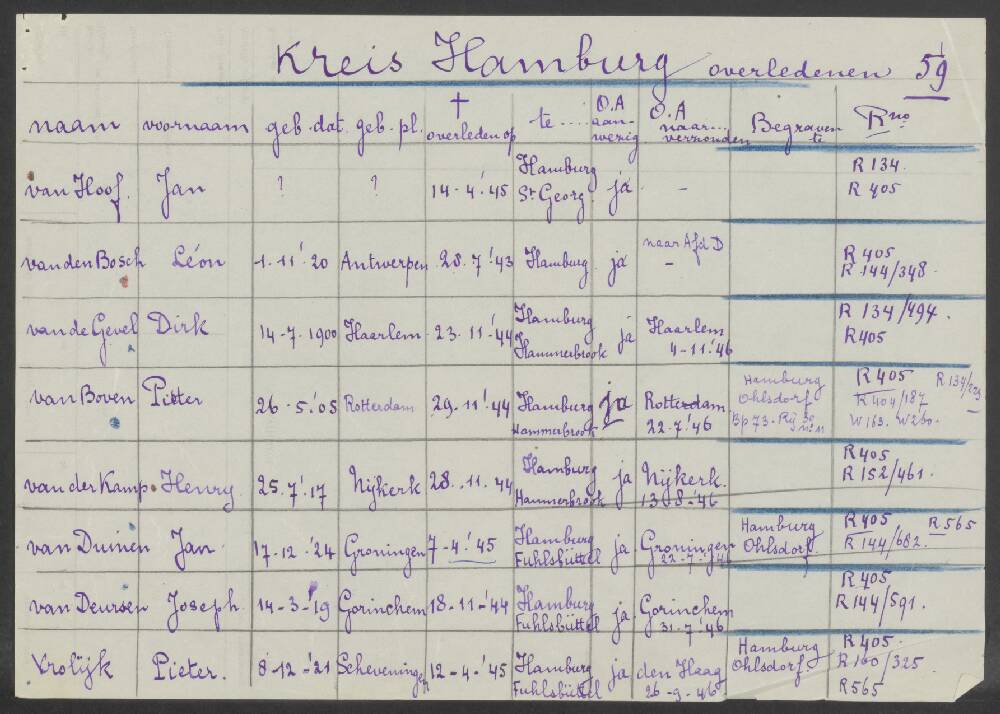 Kreis Hamburg overledenen 59
naam voornaam geb. dat. geb. pl. † overleden op te .... O.A aanwezig O.A naar... verzonden Begraven te Rno
van Hoof Jan ? ? 14-4-'45 Hamburg St Georg. ja - R 134.
R 405
van den Bosch Léon 1.11.'20 Antwerpen 28.7.'43 Hamburg ja naar Afd D - R 405
R 144/348.
van de Gevel Dirk 14-7.1900 Haarlem 23.11.'44 Hamburg Hammerbrook ja Haarlem 4-11.'46 R 134/494.
R405
van Boven Pieter 26-5.'05 Rotterdam 29.11.'44 Hamburg Hammerbrook ja Rotterdam 22.7.'46 Hamburg Ohlsdorf Bp 73-Rij 30 R 405
R 404/187
W163. W260.
van der Kamp Henry. 25.7.'17 Nijkerk 28.11.'44 Hamburg Hammerbrook ja Nijkerk. 13-8-'46 R 405
R 152/461.
van Duinen Jan 17-12.'24 Groningen 7-4.'45 Hamburg Fuhlsbüttel ja Groningen 22-7.'46 Hamburg Ohlsdorf. R 405 R 565
R 144/682.
van Deursen Joseph 14-3-'19 Gorinchem 18-11-'44 Hamburg Fuhlsbüttel ja Gorinchem 31.7.'46 R 405
R 144/591.
Vrolijk Pieter. 8-12-'21 Scheveningen 12-4-'45 Hamburg Fuhlsbüttel ja den Haag 26-9-'46 Hamburg Ohlsdorf. R 405.
R 160/325
R 565